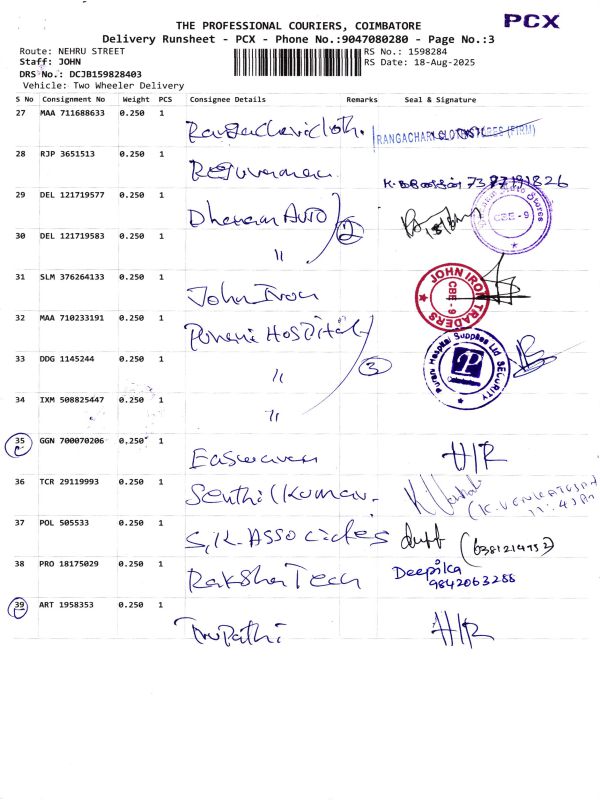 THE PROFESSIONAL COURIERS, COIMBATORE
PCX
Delivery Runsheet - PCX - Phone No.:9047080280 - Page No.:3
Route: NEHRU STREET
RS No.: 1598284
Staff: JOHN
RS Date: 18-Aug-2025
DRS No.: DCJB159828403
Vehicle: Two Wheeler Delivery
S No Consignment No Weight PCS Consignee Details Remarks Seal & Signature
27 MAA 711688633 0.250 1
RANGACHARI (FIRM)
28 RJP 3651513 0.250 1
29 DEL 121719577 0.250 1 Dhanam AUTO
2
Auto Stores CBE-9
30 DEL 121719583 0.250 1 "
31 SLM 376264133 0.250 1 John Iron
JOHN IRON TRADERS CBE - 9
32 MAA 710233191 0.250 1 Purani HOSpital
Purani Hospital Supplies Ltd SECURITY
33 DDG 1145244 0.250 1 "
3
34 IXM 508825447 0.250 1 "
35 GGN 700070206 0.250 1 Easwaran H/R
36 TCR 29119993 0.250 1 Senthil Kumar.
37 POL 505533 0.250 1 S.K. ASSociates (6381214952)
38 PRO 18175029 0.250 1 Raksha Tech Deepika
9842063288
39 ART 1958353 0.250 1 Tirupathi H/R